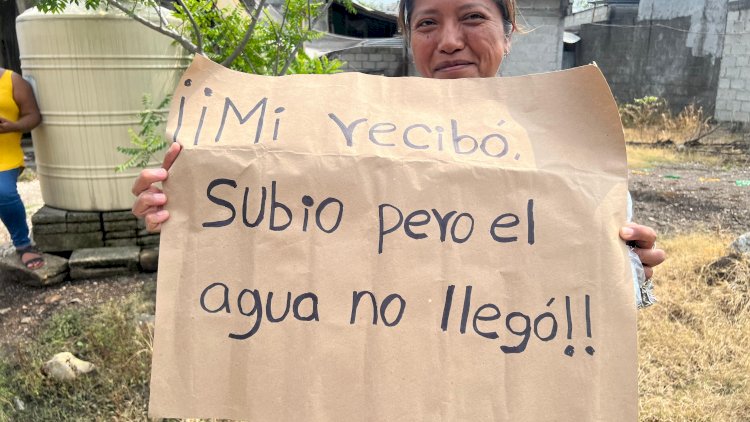 ¡¡Mi recibó.
SUbio pero el
agua no llegó!!